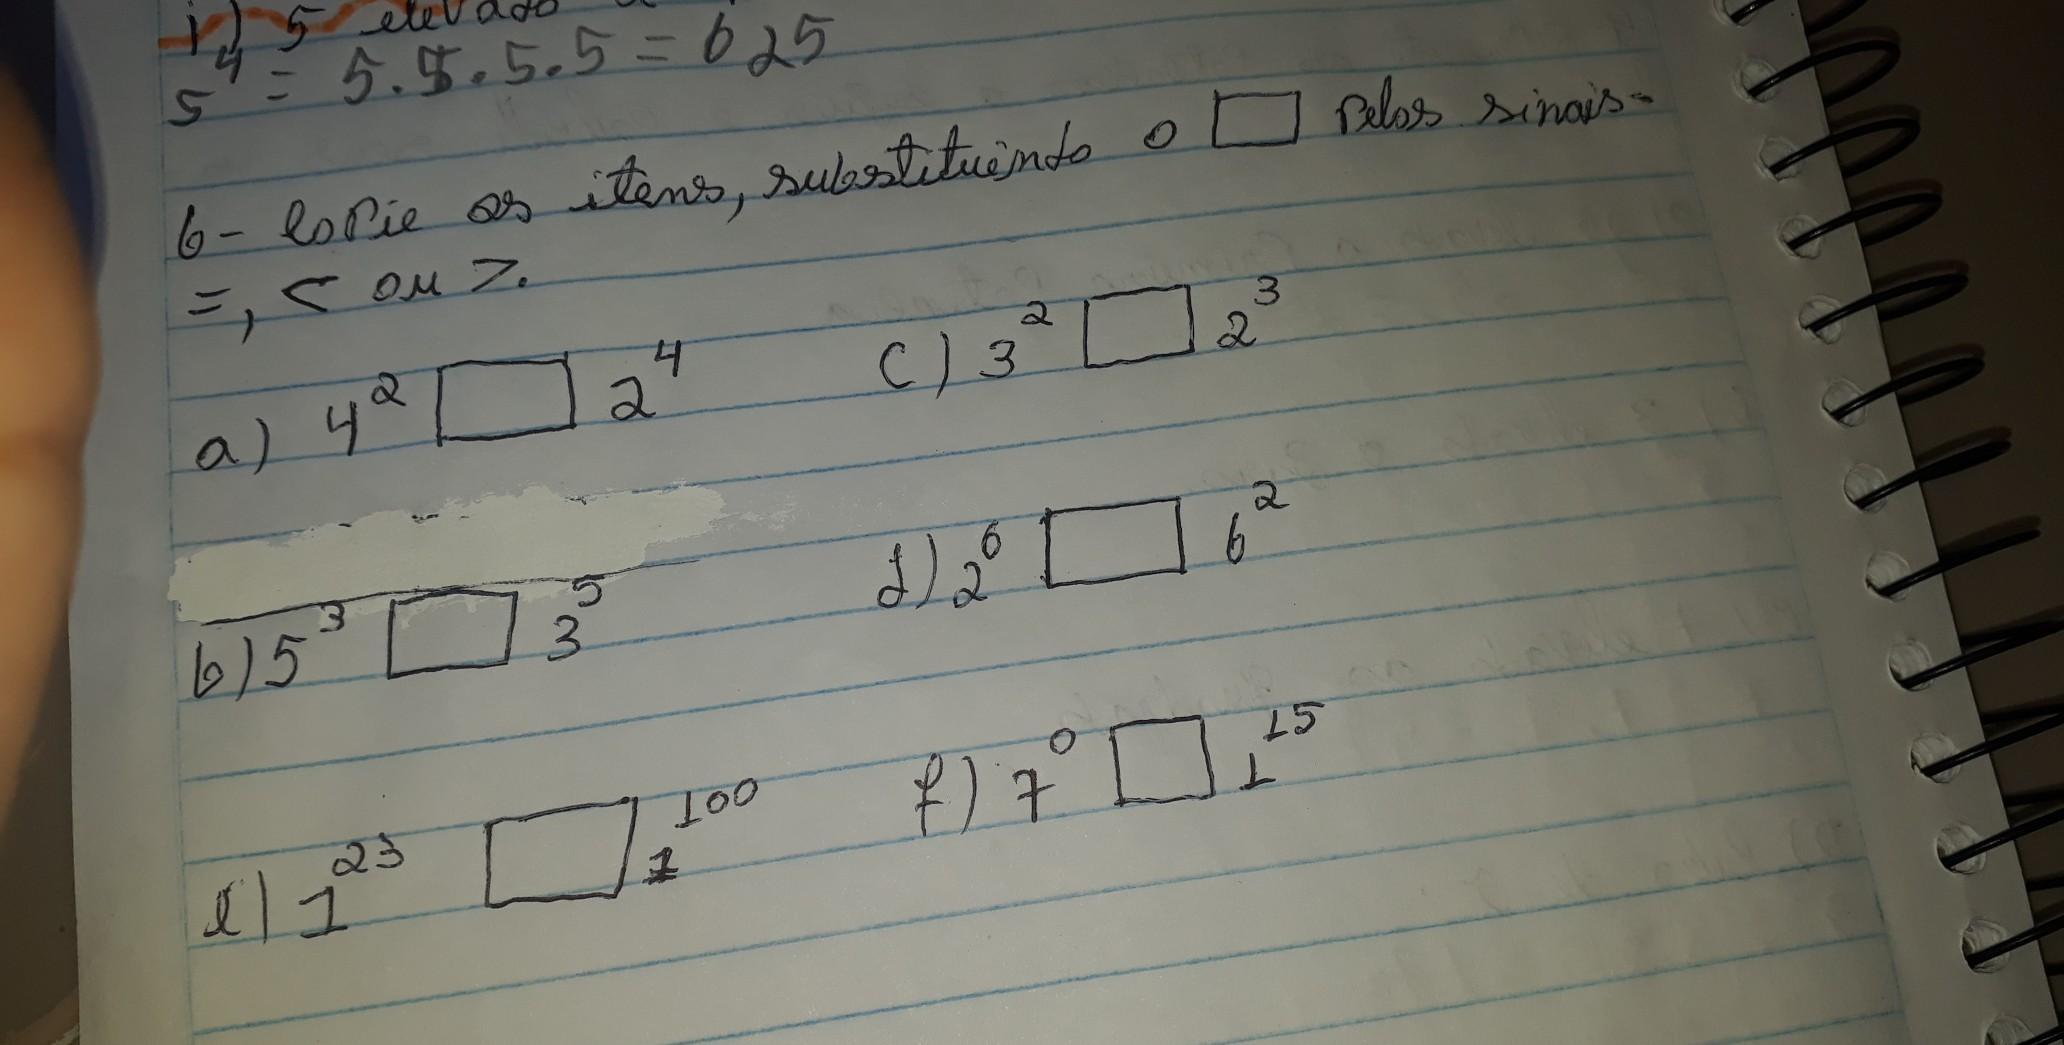 i) 5 elevado
5⁴ = 5.5.5.5 = 625
6- Copie os itens, substituindo o □ pelos sinais-
=, < ou >.
a) 4² □ 2⁴ c) 3² □ 2³
b) 5³ □ 3⁵ d) 2⁶ □ 6²
e) 1²³ □ 1¹⁰⁰ f) 7⁰ □ 1¹⁵